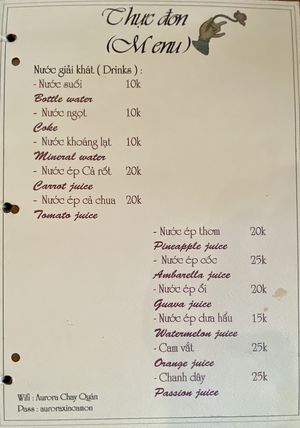 Thực đơn
(Menu)
Nước giải khát ( Drinks ) :
- Nước suối 10k
Bottle water
- Nước ngọt 10k
Coke
- Nước khoáng lạt 10k
Mineral water
- Nước ép Cà rốt 20k
Carrot juice
- Nước ép cà chua 20k
Tomato juice
- Nước ép thơm 20k
Pineapple juice
- Nước ép cốc 25k
Ambarella juice
- Nước ép ổi 20k
Guava juice
- Nước ép dưa hấu 15k
Watermelon juice
- Cam vắt 25k
Orange juice
- Chanh dây 25k
Passion juice
Wifi : Aurora Chay Quán
Pass : auroraxincamon